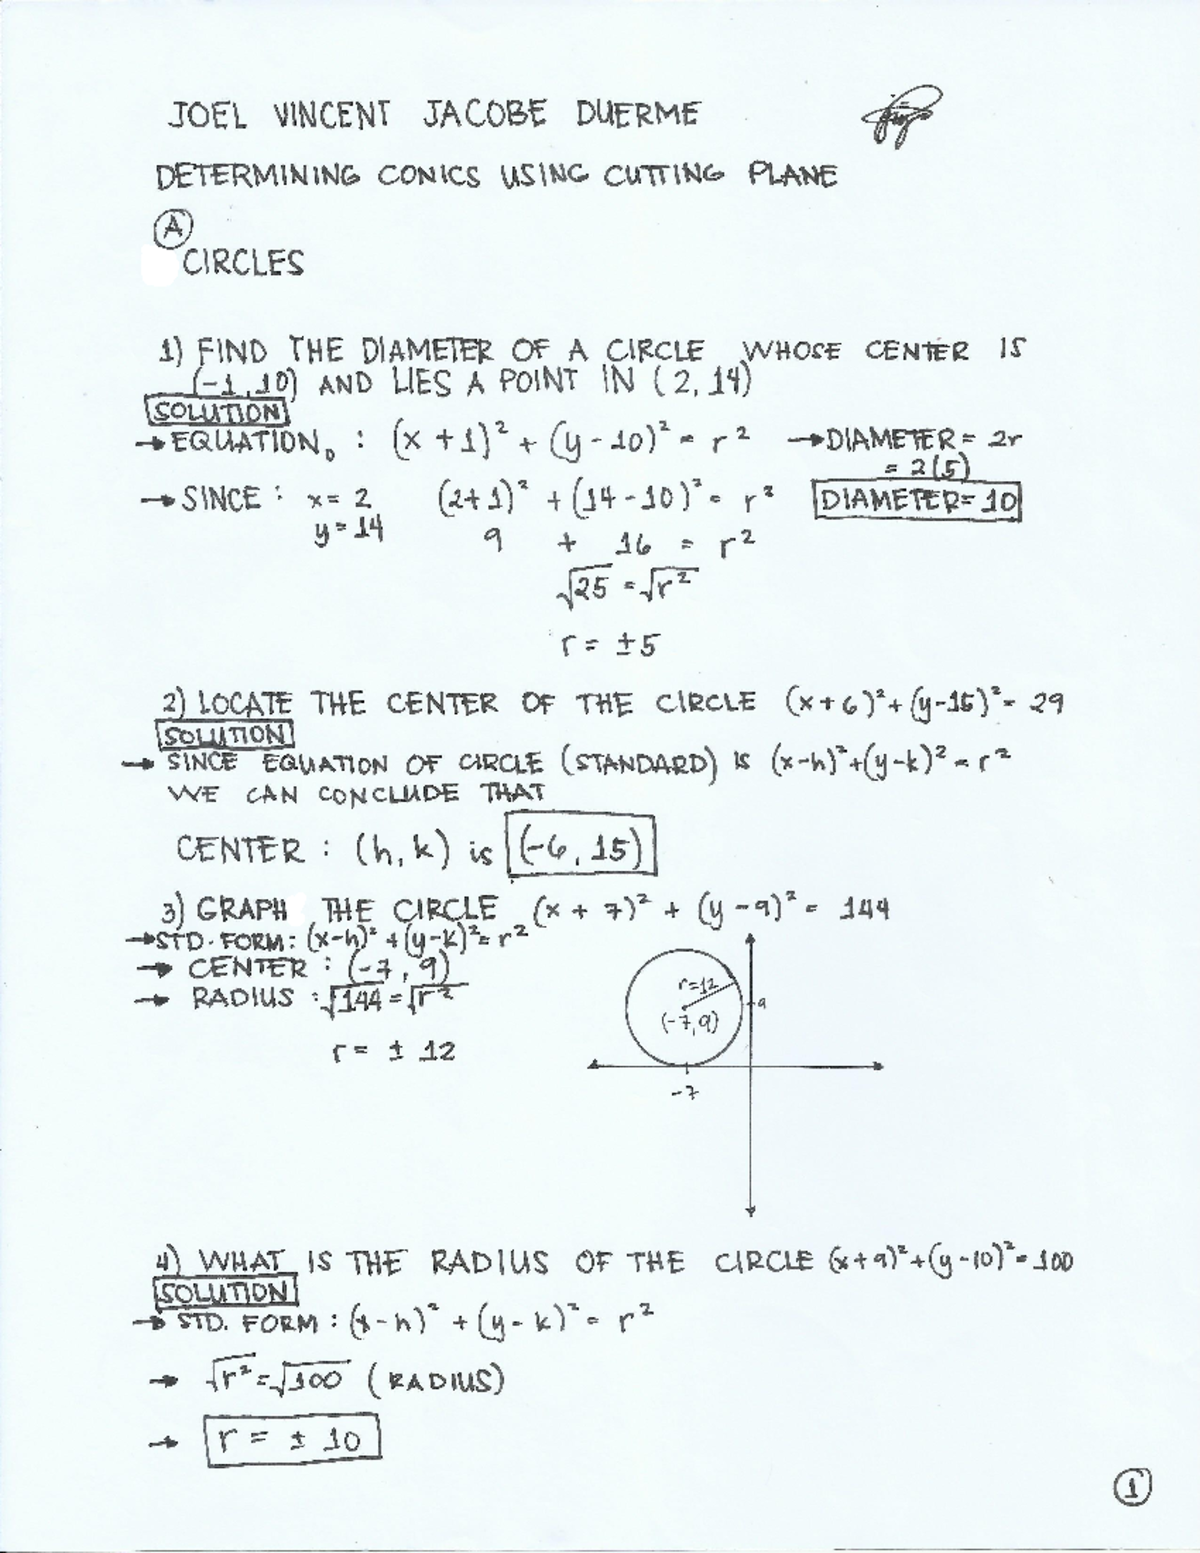 JOEL VINCENT JACOBE DUERME
DETERMINING CONICS USING CUTTING PLANE
A
CIRCLES
1) FIND THE DIAMETER OF A CIRCLE WHOSE CENTER IS
(-1, 10) AND LIES A POINT IN (2, 14)
SOLUTION
→ EQUATION, : (x + 1)² + (y - 10)² = r² → DIAMETER = 2r
= 2(5)
→ SINCE : x = 2 (2+1)² + (14-10)² = r² DIAMETER = 10
y = 14 9 + 16 = r²
√25 = √r²
r = ±5
2) LOCATE THE CENTER OF THE CIRCLE (x+6)² + (y-15)² = 29
SOLUTION
→ SINCE EQUATION OF CIRCLE (STANDARD) IS (x-h)² + (y-k)² = r²
WE CAN CONCLUDE THAT
CENTER : (h, k) is (-6, 15)
3) GRAPH THE CIRCLE (x + 7)² + (y - 9)² = 144
→ STD. FORM : (x-h)² + (y-k)² = r²
→ CENTER : (-7, 9)
→ RADIUS : √144 = √r²
r = ± 12
r=12
9
(-7, 9)
-7
4) WHAT IS THE RADIUS OF THE CIRCLE (x+9)² + (y-10)² = 100
SOLUTION
→ STD. FORM : (x-h)² + (y-k)² = r²
→ √r² = √100 (RADIUS)
→ r = ± 10
1